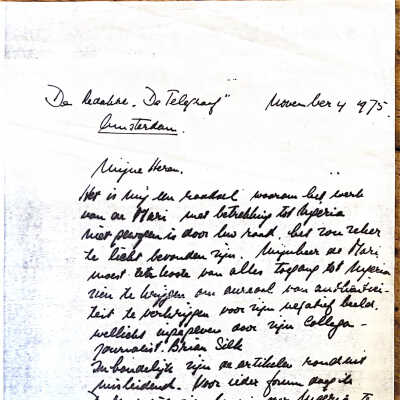 De Redaktie "De Telegraaf" November 4 1975.
Amsterdam.
Mijne Heren.
Het is mij een raadsel waarom het werk
van de Mari met betrekking tot Nyeria
niet gewogen is door uw raad, het zou zeker
te licht bevonden zijn. Mijnheer de Mari
moest ten koste van alles toegang tot Nyeria
zien te krijgen om aureool van authentici-
teit te verkrijgen voor zijn negatief beeld,
wellicht ingegeven door zijn Collega-
journalist. Brian Silk
Inhoudelijk zijn de artikelen ronduit
misleidend. Voor ieder forum